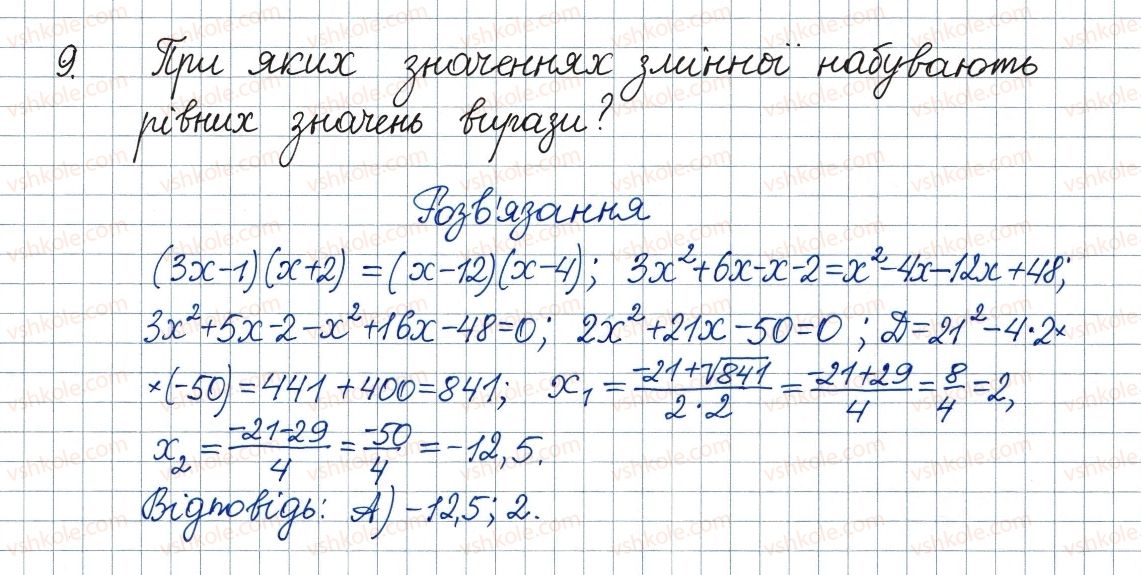 9. При яких значеннях змінної набувають
рівних значень вирази?
Розв'язання
(3x-1)(x+2)=(x-12)(x-4); 3x²+6x-x-2=x²-4x-12x+48;
3x²+5x-2-x²+16x-48=0; 2x²+21x-50=0; D=21²-4·2×
×(-50)=441+400=841; x₁=(-21+√841)/(2·2)=(-21+29)/4=8/4=2,
x₂=(-21-29)/4=-50/4=-12,5.
Відповідь: А) -12,5; 2.